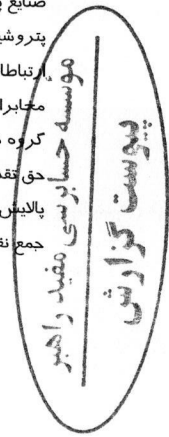 صنایع
پتروشی
ارتباطا
مخابرا
گروه
حق تقد
پالایش
جمع نق
موسسه حسابرسی مفید راهبر
پیوست گزارش